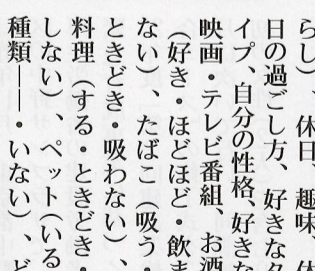 らし）、休日、趣味、休
日の過ごし方、好きなタ
イプ、自分の性格、好きな
映画・テレビ番組、お酒
（好き・ほどほど・飲ま
ない）、たばこ（吸う・
ときどき・吸わない）、
料理（する・ときどき・
しない）、ペット（いる
種類――・いない）、ど